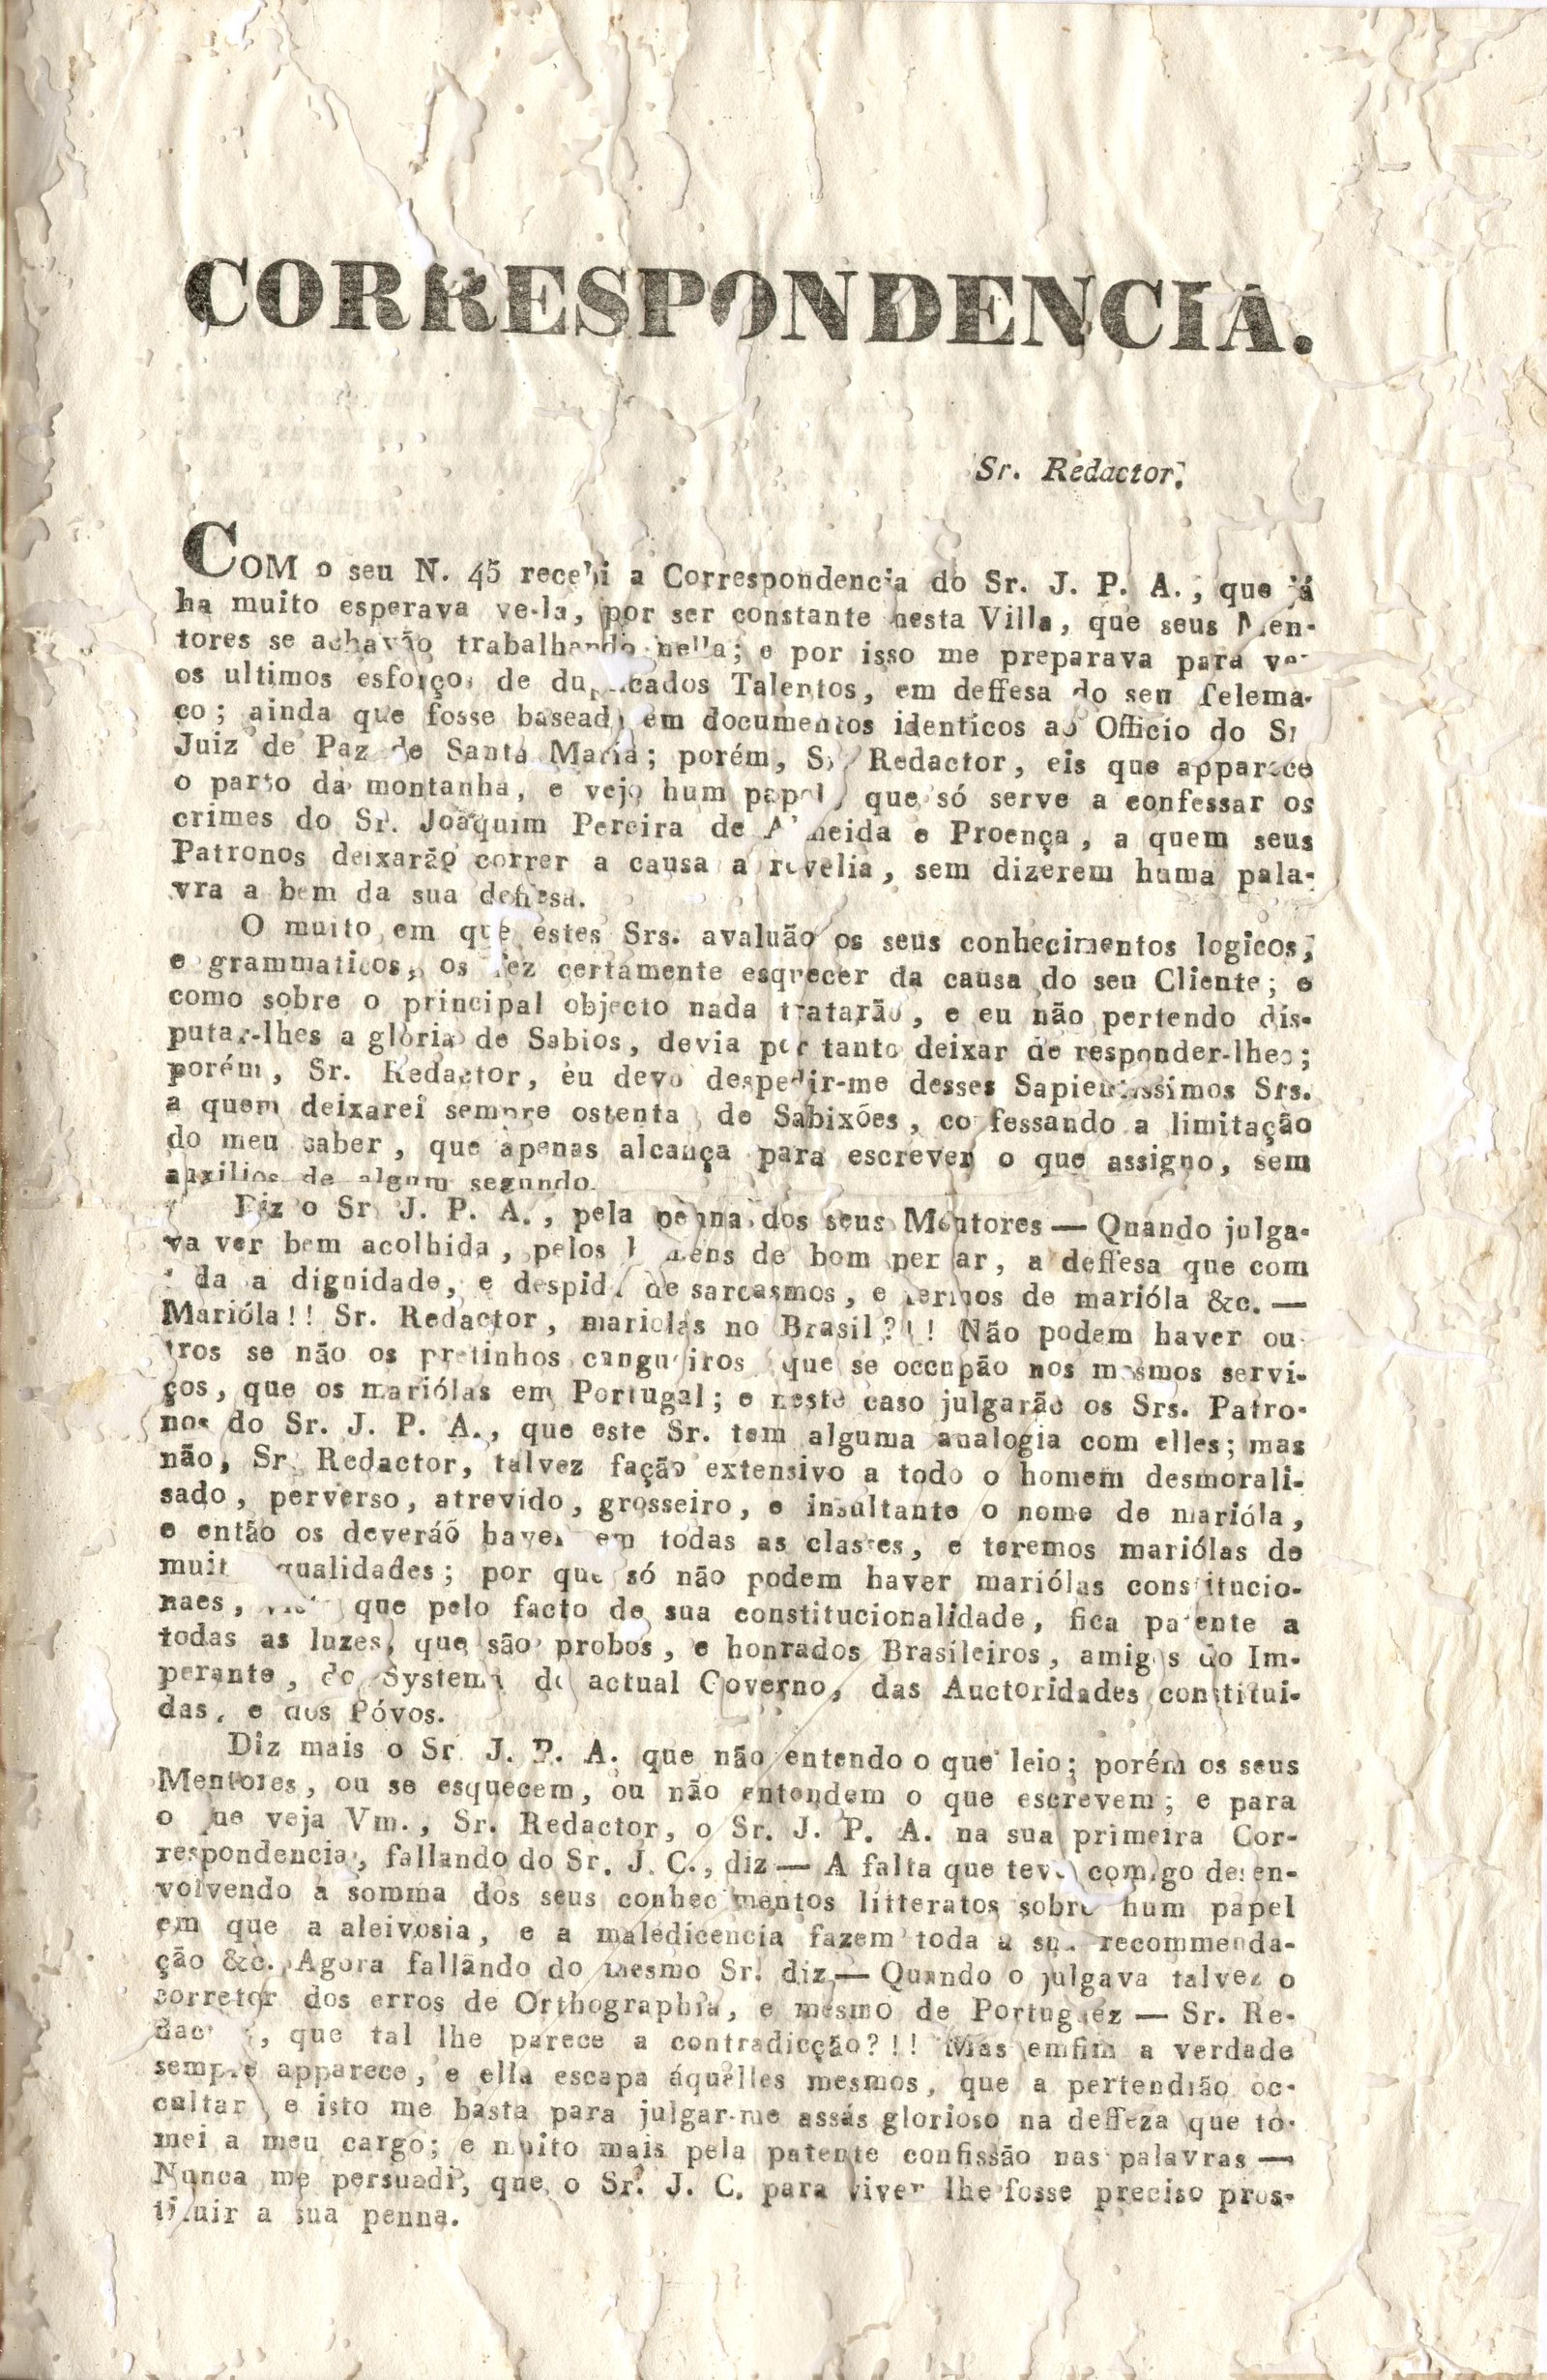 CORRESPONDENCIA.
Sr. Redactor.
COM o seu N. 45 recebi a Correspondencia do Sr. J. P. A., que já
ha muito esperava ve-la, por ser constante nesta Villa, que seus Men-
tores se achavão trabalhando nella; e por isso me preparava para ver
os ultimos esforços de duplicados Talentos, em deffesa do seu Telema-
co; ainda que fosse baseada em documentos identicos ao Officio do Sr
Juiz de Paz de Santa Maria; porém, Sr. Redactor, eis que apparece
o parto da montanha, e vejo hum papel, que só serve a confessar os
crimes do Sr. Joaquim Pereira de Almeida e Proença, a quem seus
Patronos deixarão correr a causa a revelia, sem dizerem huma pala-
vra a bem da sua deffesa.
O muito em que estes Srs. avaluão os seus conhecimentos logicos,
e grammaticos, os fez certamente esquecer da causa do seu Cliente; e
como sobre o principal objecto nada tratarão, e eu não pertendo dis-
putar-lhes a gloria de Sabios, devia por tanto deixar de responder-lhes;
porém, Sr. Redactor, eu devo despedir-me desses Sapientissimos Srs.
a quem deixarei sempre ostentar de Sabixões, confessando a limitação
do meu saber, que apenas alcança para escrever o que assigno, sem
auxilios de algum segundo.
Diz o Sr J. P. A., pela penna dos seus Mentores — Quando julga-
va ver bem acolhida, pelos homens de bom pensar, a deffesa que com
da a dignidade, e despida de sarcasmos, e termos de marióla &c. —
Marióla!! Sr. Redactor, mariolas no Brasil?!! Não podem haver ou-
tros se não os pretinhos cangueiros que se occupão nos mesmos servi-
ços, que os mariólas em Portugal; e neste caso julgarão os Srs. Patro-
nos do Sr. J. P. A., que este Sr. tem alguma analogia com elles; mas
não, Sr. Redactor, talvez fação extensivo a todo o homem desmorali-
sado, perverso, atrevido, grosseiro, e insultante o nome de marióla,
e então os deveráõ haver em todas as classes, e teremos mariólas de
muit qualidades; por que só não podem haver mariólas constitucio-
naes, visto que pelo facto de sua constitucionalidade, fica patente a
todas as luzes, que são probos, e honrados Brasileiros, amigos do Im-
perante, do Systema do actual Governo, das Auctoridades constitui-
das, e dos Póvos.
Diz mais o Sr. J. P. A. que não entendo o que leio; porém os seus
Mentores, ou se esquecem, ou não entendem o que escrevem; e para
o que veja Vm., Sr. Redactor, o Sr. J. P. A. na sua primeira Cor-
respondencia, fallando do Sr. J. C., diz — A falta que teve comigo desen-
volvendo a somma dos seus conhecimentos litteratos sobre hum papel
em que a aleivosia, e a maledicencia fazem toda a sua recommenda-
ção &c. Agora fallando do mesmo Sr. diz — Quando o julgava talvez o
corretor dos erros de Orthographia, e mesmo de Portuguez — Sr. Re-
dactor, que tal lhe parece a contradicção?!! Mas emfim a verdade
sempre apparece, e ella escapa áquelles mesmos, que a pertendião oc-
cultar, e isto me basta para julgar-me assás glorioso na deffeza que to-
mei a meu cargo; e muito mais pela patente confissão nas palavras —
Nunca me persuadi, que o Sr. J. C. para viver lhe fosse preciso pros-
tituir a sua penna.